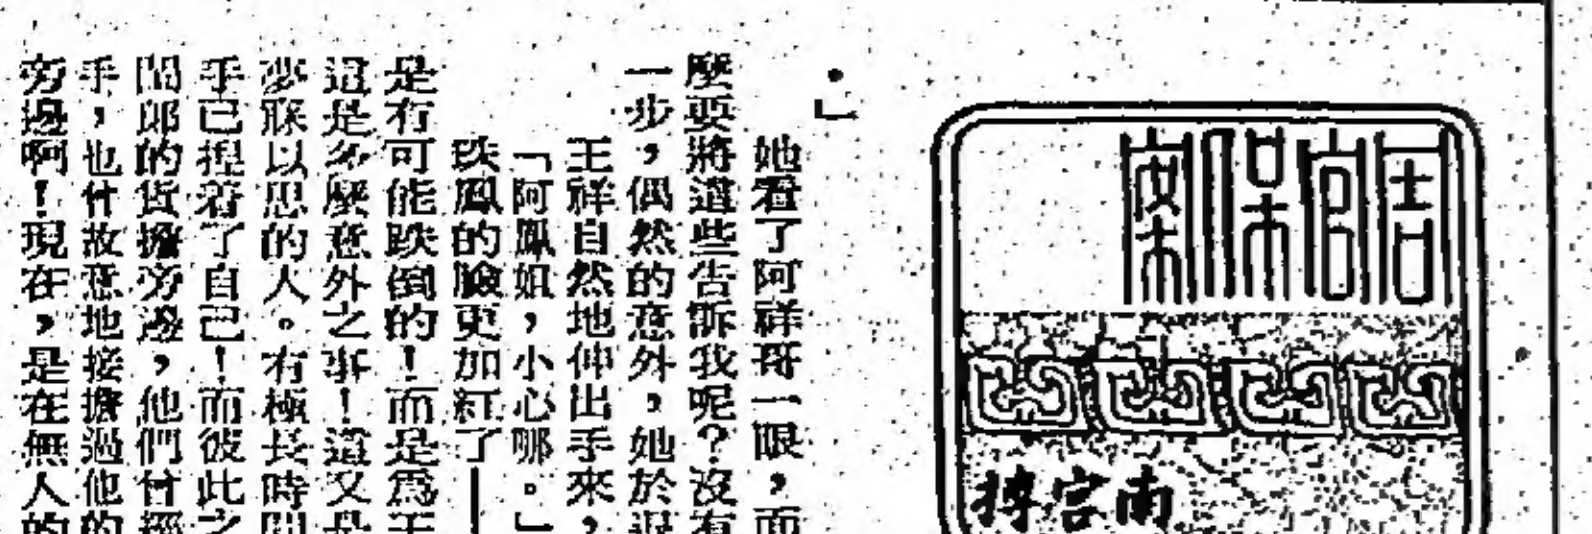 周宮保案
南宮搏
。」
她看了阿祥哥一眼，而
麼要將這些告訴我呢？沒有
一步，偶然的意外，她於退
王祥自然地伸出手來，
「阿鳳姐，小心哪。」
鳳的臉更加紅了——
是有可能跌倒的！而是爲王
這是多麼意外之事！這又是
夢寐以思的人。有極長時間
手已捏着了自己！而彼此之
郎的貨擔旁邊，他們曾經
手，也曾故意地接擔過他的
旁邊啊！現在，是在無人的